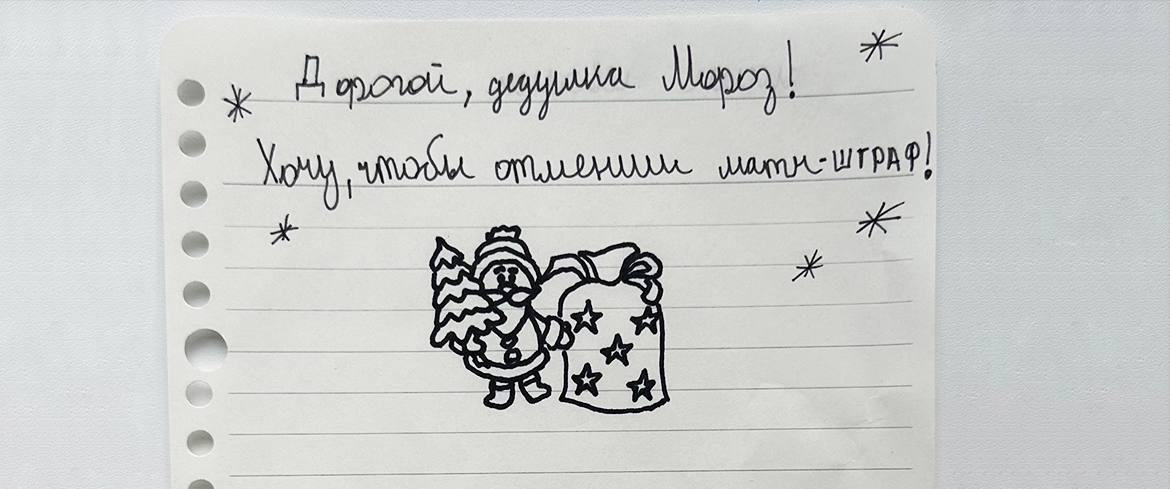 Дорогой, дедушка Мороз!
Хочу, чтобы отменили матч-ШТРАФ!